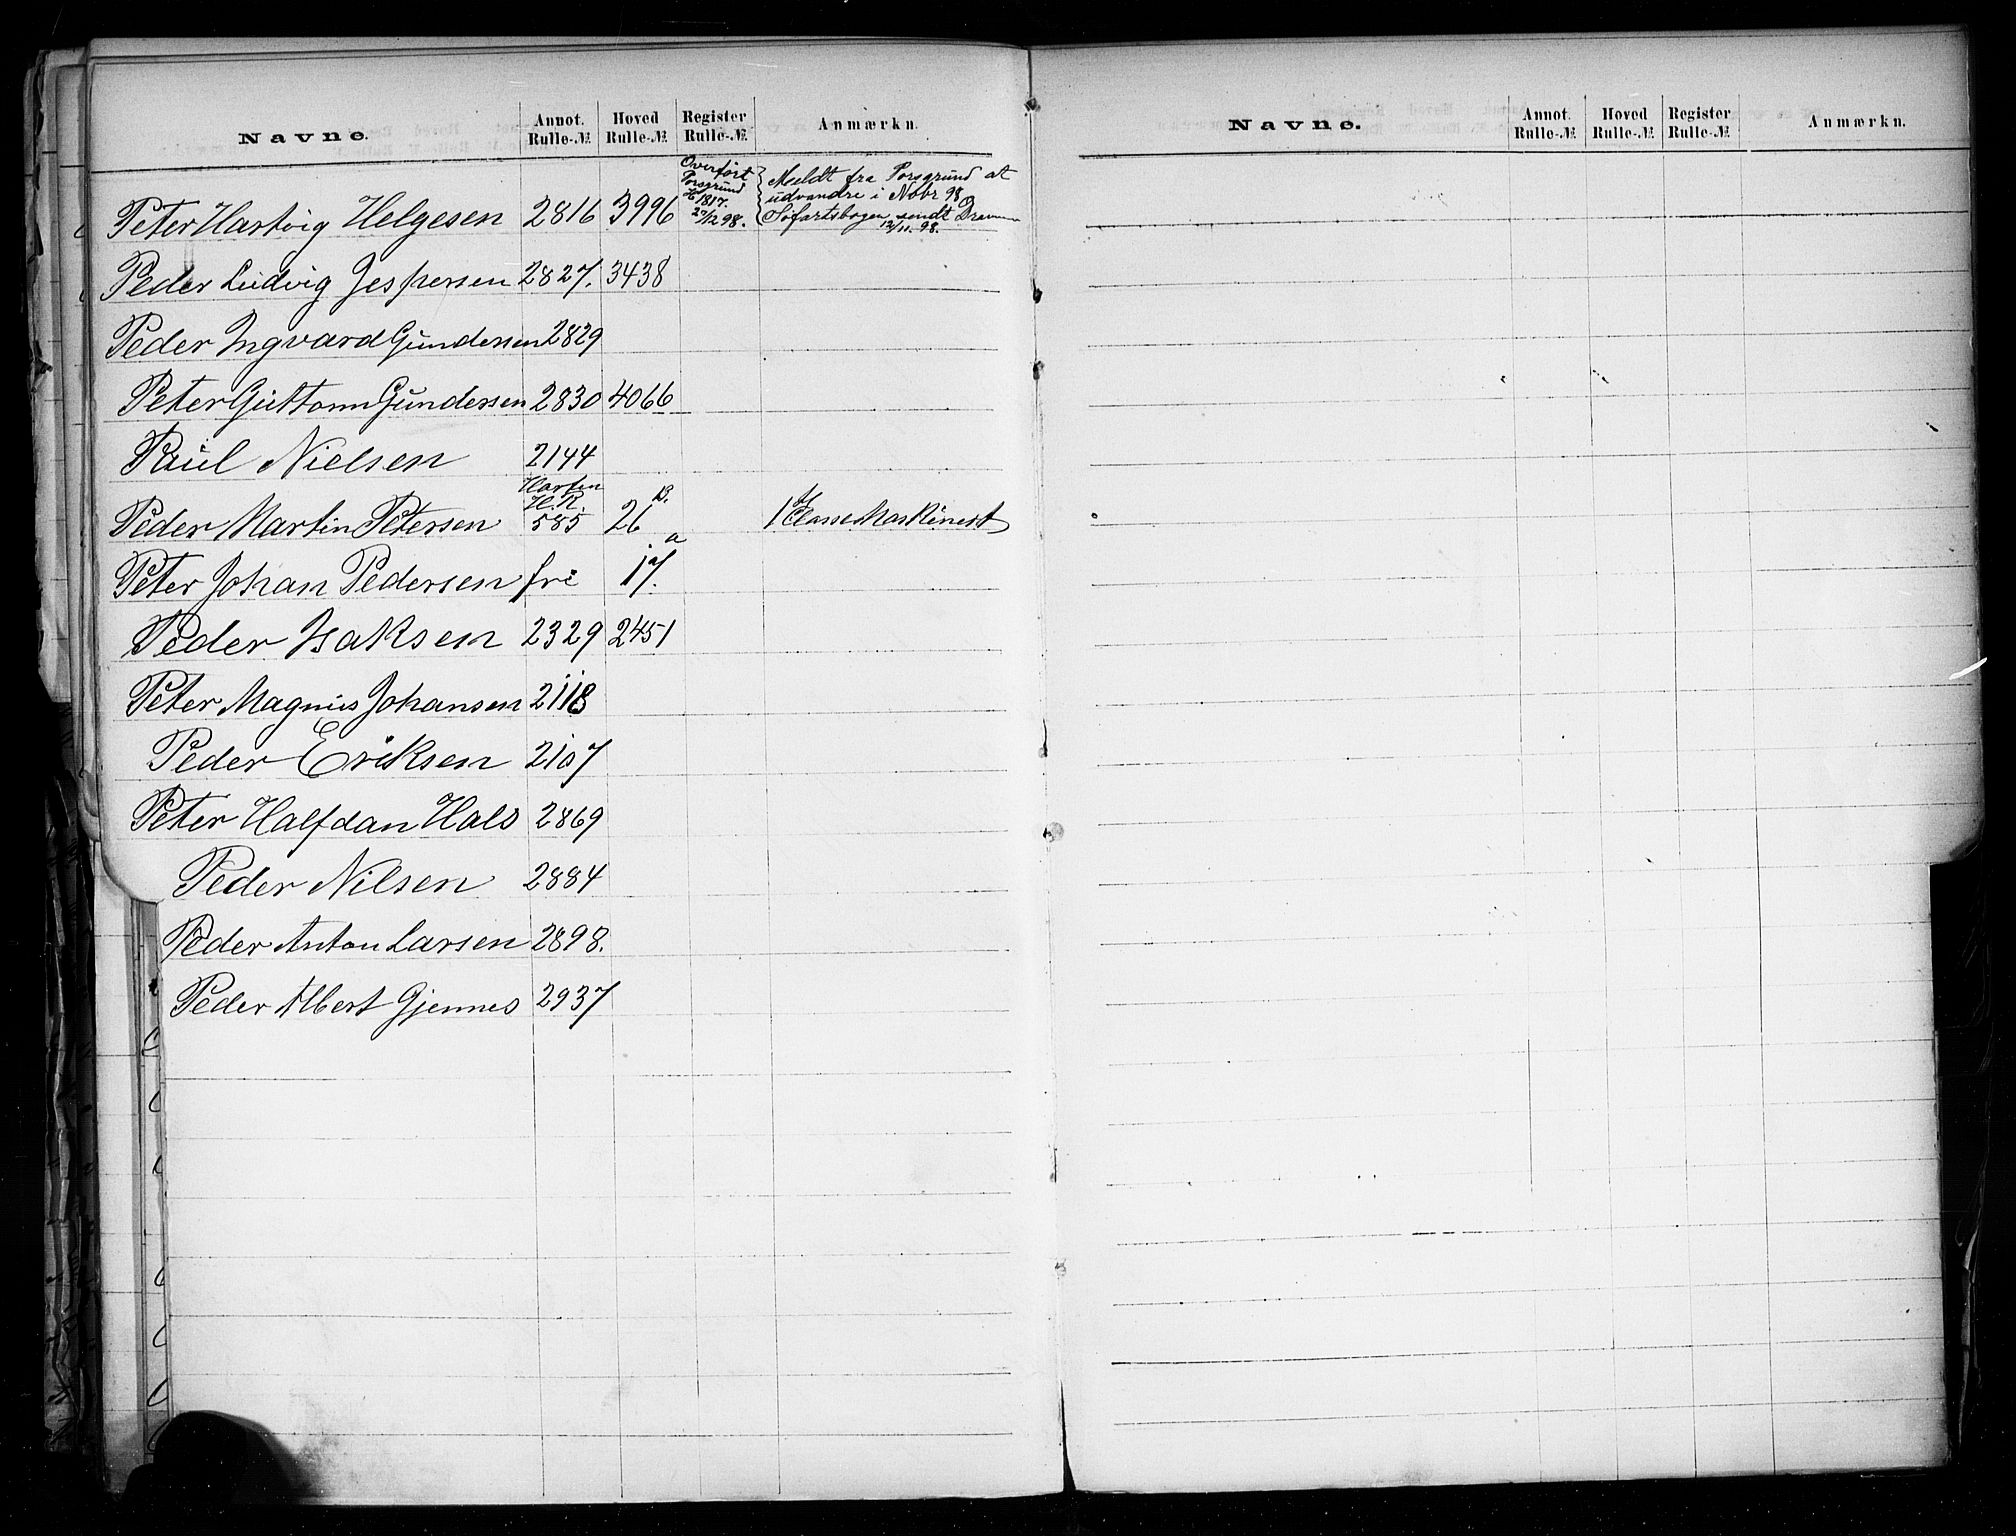 Navne. Annot. Rulle-№ Hoved Rulle-№ Register Rulle-№ Anmærkn.
Peter Hartvig Helgesen 2816 3996 Overført Porsgrund H 1817. 2/12 98. Meldt fra Porsgrund at
udvandre i Novbr 98
Søfartsbogen sendt Drammen
12/11. 98.
Peder Ludvig Jespersen 2827. 3438
Peder Ingvard Gundersen 2829
Peter Guttorm Gundersen 2830 4066
Paul Nielsen 2144
Peder Martin Petersen H.R. 585 26 B. 1 Classe Maskinist
Peter Johan Pedersen fri 17. a
Peder Isaksen 2329 2451
Peter Magnus Johansen 2118
Peder Eriksen 2107
Peter Halfdan Hals 2869
Peder Nilsen 2884
Peder Anton Larsen 2898.
Peder Albert Gjennes 2937
Navne. Annot. Rulle-№ Hoved Rulle-№ Register Rulle-№ Anmærkn.